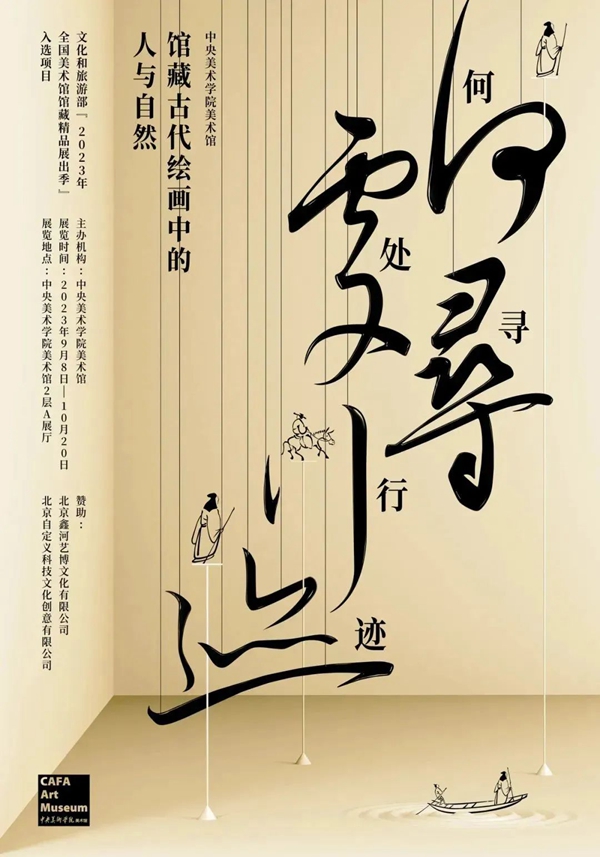 何
处
寻
行
迹
何處尋行迹
中央美术学院美术馆
馆藏古代绘画中的
人与自然
文化和旅游部『2023年
全国美术馆馆藏精品展出季』
入选项目
主办机构：中央美术学院美术馆
展览时间：2023年9月8日—10月20日
展览地点：中央美术学院美术馆2层A展厅
赞助：
北京鑫河艺博文化有限公司
北京自定义科技文化创意有限公司
CAFA
Art
Museum
中央美術学院 美术馆